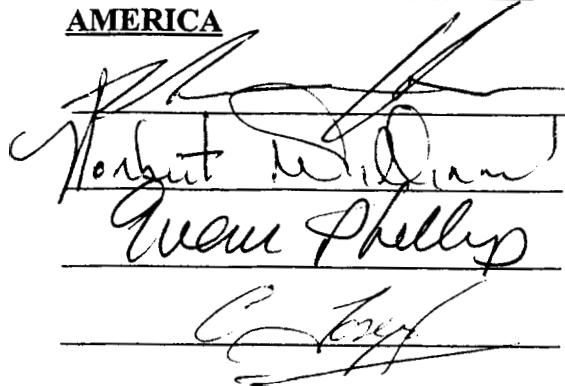 AMERICA
Norbert Williams
Evan Phillip
C Josey